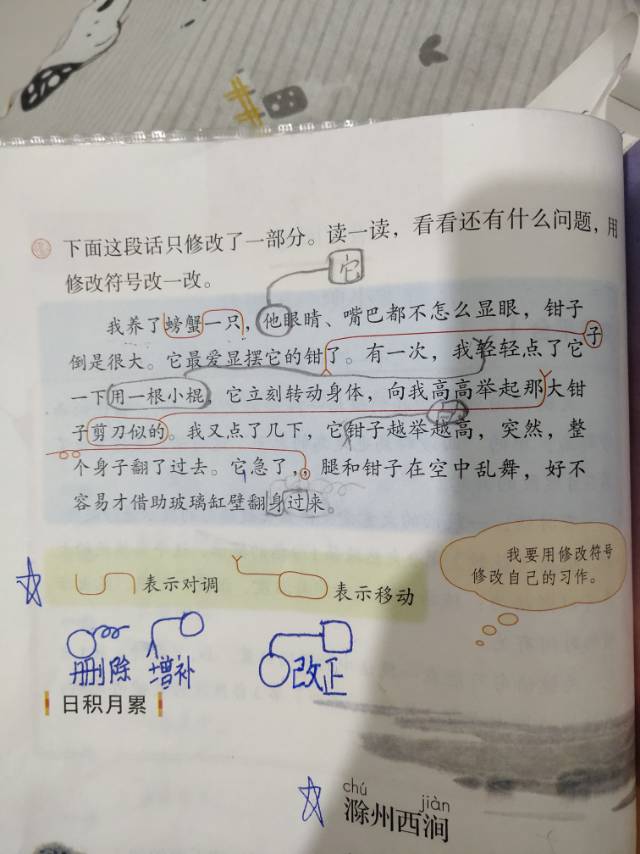 下面这段话只修改了一部分。读一读，看看还有什么问题，用
修改符号改一改。
它
我养了螃蟹一只，他眼睛、嘴巴都不怎么显眼，钳子
子
倒是很大。它最爱显摆它的钳了。有一次，我轻轻点了它
一下用一根小棍，它立刻转动身体，向我高高举起那大钳
子剪刀似的。我又点了几下，它钳子越举越高，突然，整
个身子翻了过去。它急了，。腿和钳子在空中乱舞，好不
容易才借助玻璃缸壁翻身过来。
我要用修改符号
修改自己的习作。
表示对调 表示移动
删除 增补 改正
日积月累
chú jiàn
滁州西涧